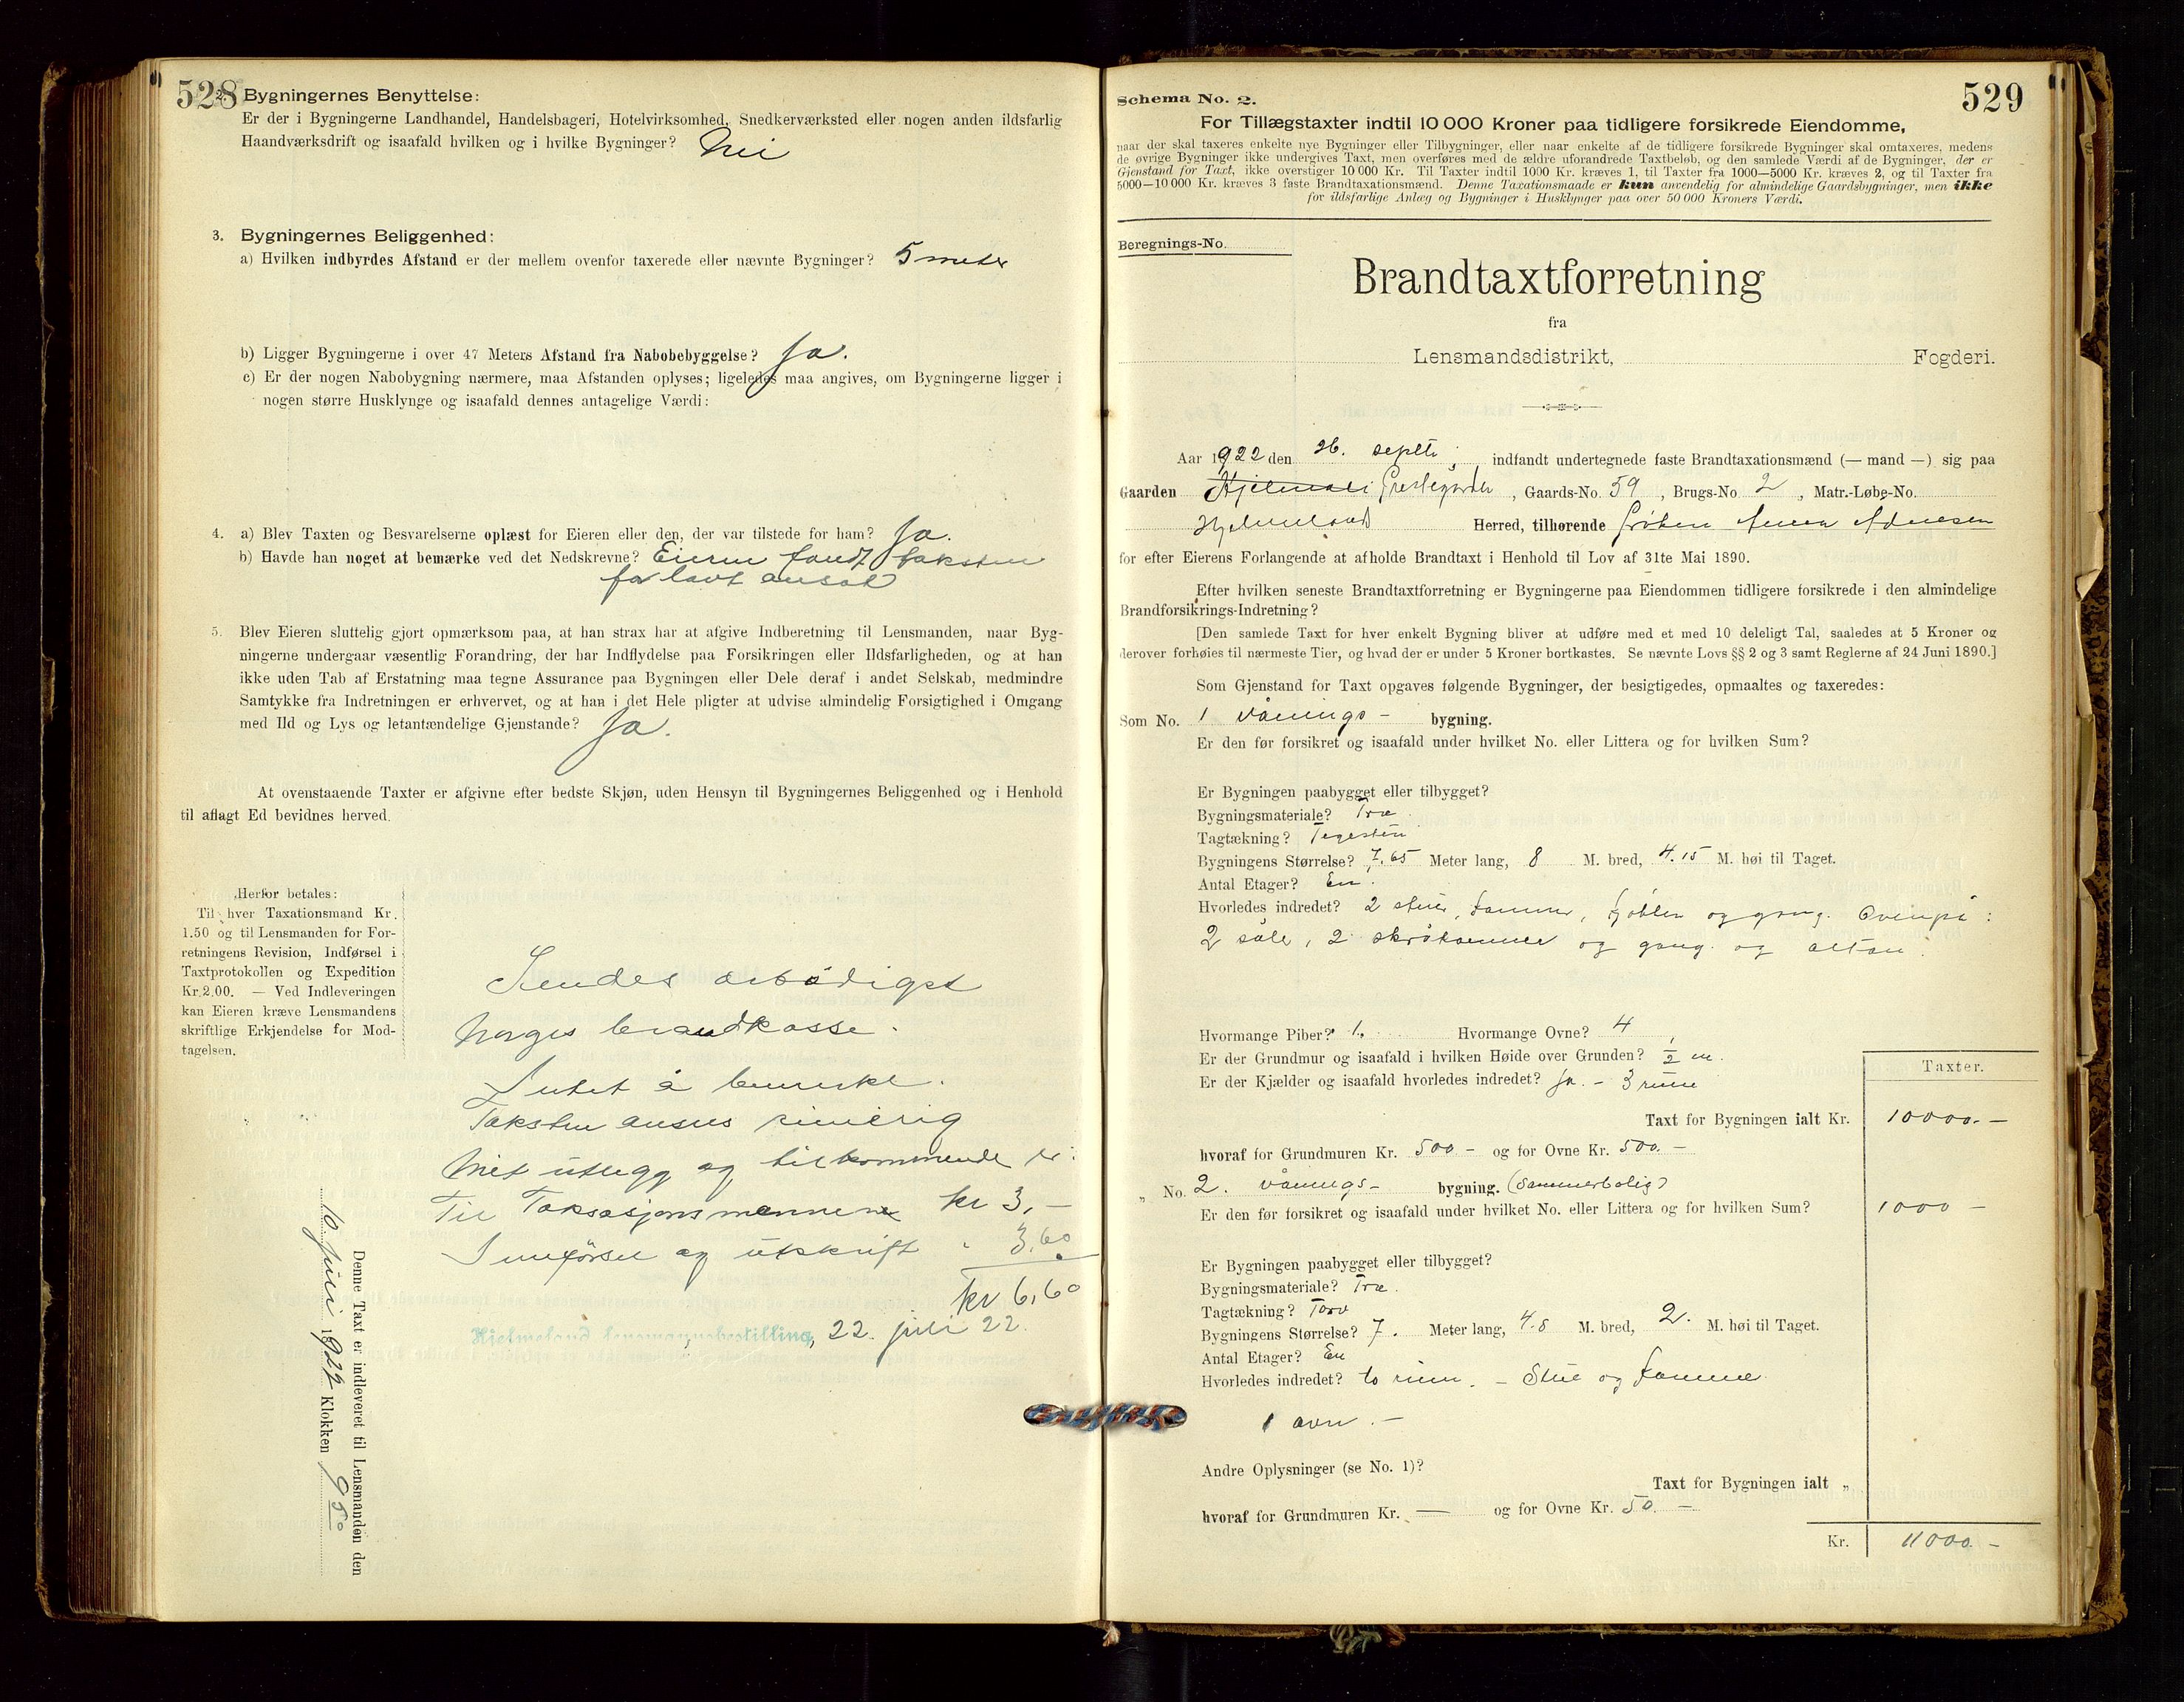 528
2. Bygningernes Benyttelse:
Er der i Bygningerne Landhandel, Handelsbageri, Hotelvirksomhed, Snedkerværksted eller nogen anden ildsfarlig
Haandværksdrift og isaafald hvilken og i hvilke Bygninger? Nei
3. Bygningernes Beliggenhed:
a) Hvilken indbyrdes Afstand er der mellem ovenfor taxerede eller nævnte Bygninger? 5 meter
b) Ligger Bygningerne i over 47 Meters Afstand fra Nabobebyggelse? Ja.
c) Er der nogen Nabobygning nærmere, maa Afstanden oplyses; ligeledes maa angives, om Bygningerne ligger i
nogen større Husklynge og isaafald dennes antagelige Værdi:
4. a) Blev Taxten og Besvarelserne oplæst for Eieren eller den, der var tilstede for ham? Ja.
b) Havde han noget at bemærke ved det Nedskrevne? Eieren fandt taksten
for lavt ansat
5. Blev Eieren sluttelig gjort opmærksom paa, at han strax har at afgive Indberetning til Lensmanden, naar Byg-
ningerne undergaar væsentlig Forandring, der har Indflydelse paa Forsikringen eller Ildsfarligheden, og at han
ikke uden Tab af Erstatning maa tegne Assurance paa Bygningen eller Dele deraf i andet Selskab, medmindre
Samtykke fra Indretningen er erhvervet, og at han i det Hele pligter at udvise almindelig Forsigtighed i Omgang
med Ild og Lys og letantændelige Gjenstande? Ja.
At ovenstaaende Taxter er afgivne efter bedste Skjøn, uden Hensyn til Bygningernes Beliggenhed og i Henhold
til aflagt Ed bevidnes herved.
Herfor betales:
Til hver Taxationsmand Kr.
1.50 og til Lensmanden for For-
retningens Revision, Indførsel i
Taxtprotokollen og Expedition
Kr. 2.00. — Ved Indleveringen
kan Eieren kræve Lensmandens
skriftlige Erkjendelse for Mod-
tagelsen.
Sendes ærbødigst
Norges brandkasse.
Intet å bemerke.
Taksten ansees rimelig
Mit utlegg og tilkommende er:
Til Taksasjonsmennene kr 3,-
Innførsel og utskrift " 3,60
kr 6,60
Hjelmeland lensmannsbestilling, 22. juli 22.
Denne Taxt er indleveret til Lensmanden den
10 juli 1922 Klokken 9 50
529
Schema No. 2.
For Tillægstaxter indtil 10 000 Kroner paa tidligere forsikrede Eiendomme,
naar der skal taxeres enkelte nye Bygninger eller Tilbygninger, eller naar enkelte af de tidligere forsikrede Bygninger skal omtaxeres, medens
de øvrige Bygninger ikke undergives Taxt, men overføres med de ældre uforandrede Taxtbeløb, og den samlede Værdi af de Bygninger, der er
Gjenstand for Taxt, ikke overstiger 10 000 Kr. Til Taxter indtil 1000 Kr. kræves 1, til Taxter fra 1000—5000 Kr. kræves 2, og til Taxter fra
5000—10 000 Kr. kræves 3 faste Brandtaxationsmænd. Denne Taxationsmaade er kun anvendelig for almindelige Gaardsbygninger, men ikke
for ildsfarlige Anlæg og Bygninger i Husklynger paa over 50 000 Kroners Værdi.
Beregnings-No.
Brandtaxtforretning
fra
Lensmandsdistrikt, Fogderi.
Aar 1922 den 26. septbr, indfandt undertegnede faste Brandtaxationsmænd (— mand —) sig paa
Gaarden Prestegården, Gaards-No. 59, Brugs-No. 2, Matr.-Løbe-No.
Hjelmeland Herred, tilhørende frøken Anna
for efter Eierens Forlangende at afholde Brandtaxt i Henhold til Lov af 31te Mai 1890.
Efter hvilken seneste Brandtaxtforretning er Bygningerne paa Eiendommen tidligere forsikrede i den almindelige
Brandforsikrings-Indretning?
[Den samlede Taxt for hver enkelt Bygning bliver at udføre med et med 10 deleligt Tal, saaledes at 5 Kroner og
derover forhøies til nærmeste Tier, og hvad der er under 5 Kroner bortkastes. Se nævnte Lovs §§ 2 og 3 samt Reglerne af 24 Juni 1890.]
Som Gjenstand for Taxt opgaves følgende Bygninger, der besigtigedes, opmaaltes og taxeredes:
Som No. 1 vånings- bygning.
Er den før forsikret og isaafald under hvilket No. eller Littera og for hvilken Sum?
Er Bygningen paabygget eller tilbygget?
Bygningsmateriale? Træ
Tagtækning? Teglsten
Bygningens Størrelse? 7.65 Meter lang, 8 M. bred, 4.15 M. høi til Taget.
Antal Etager? En.
Hvorledes indredet? 2 stuer, kammer, kjøkken og gang. Ovenpå:
2 sale, 2 skråkammer og gang. og altan.
Hvormange Piber? 1. Hvormange Ovne? 4
Er der Grundmur og isaafald i hvilken Høide over Grunden? ½ m.
Er der Kjælder og isaafald hvorledes indredet? Ja. - 3 rum
Taxter.
Taxt for Bygningen ialt Kr. 10000.-
hvoraf for Grundmuren Kr. 500- og for Ovne Kr. 500.-
" No. 2. vånings- bygning. (Sommerbolig)
Er den før forsikret og isaafald under hvilket No. eller Littera og for hvilken Sum? 1000 -
Er Bygningen paabygget eller tilbygget?
Bygningsmateriale? Træ.
Tagtækning? Torv
Bygningens Størrelse? 7. Meter lang, 4.8 M. bred, 2. M. høi til Taget.
Antal Etager? En
Hvorledes indredet? to rum. - Stue og kammer.
1 ovn.-
Andre Oplysninger (se No. 1)?
Taxt for Bygningen ialt "
hvoraf for Grundmuren Kr. — og for Ovne Kr. 50.-
Kr. 11000.-